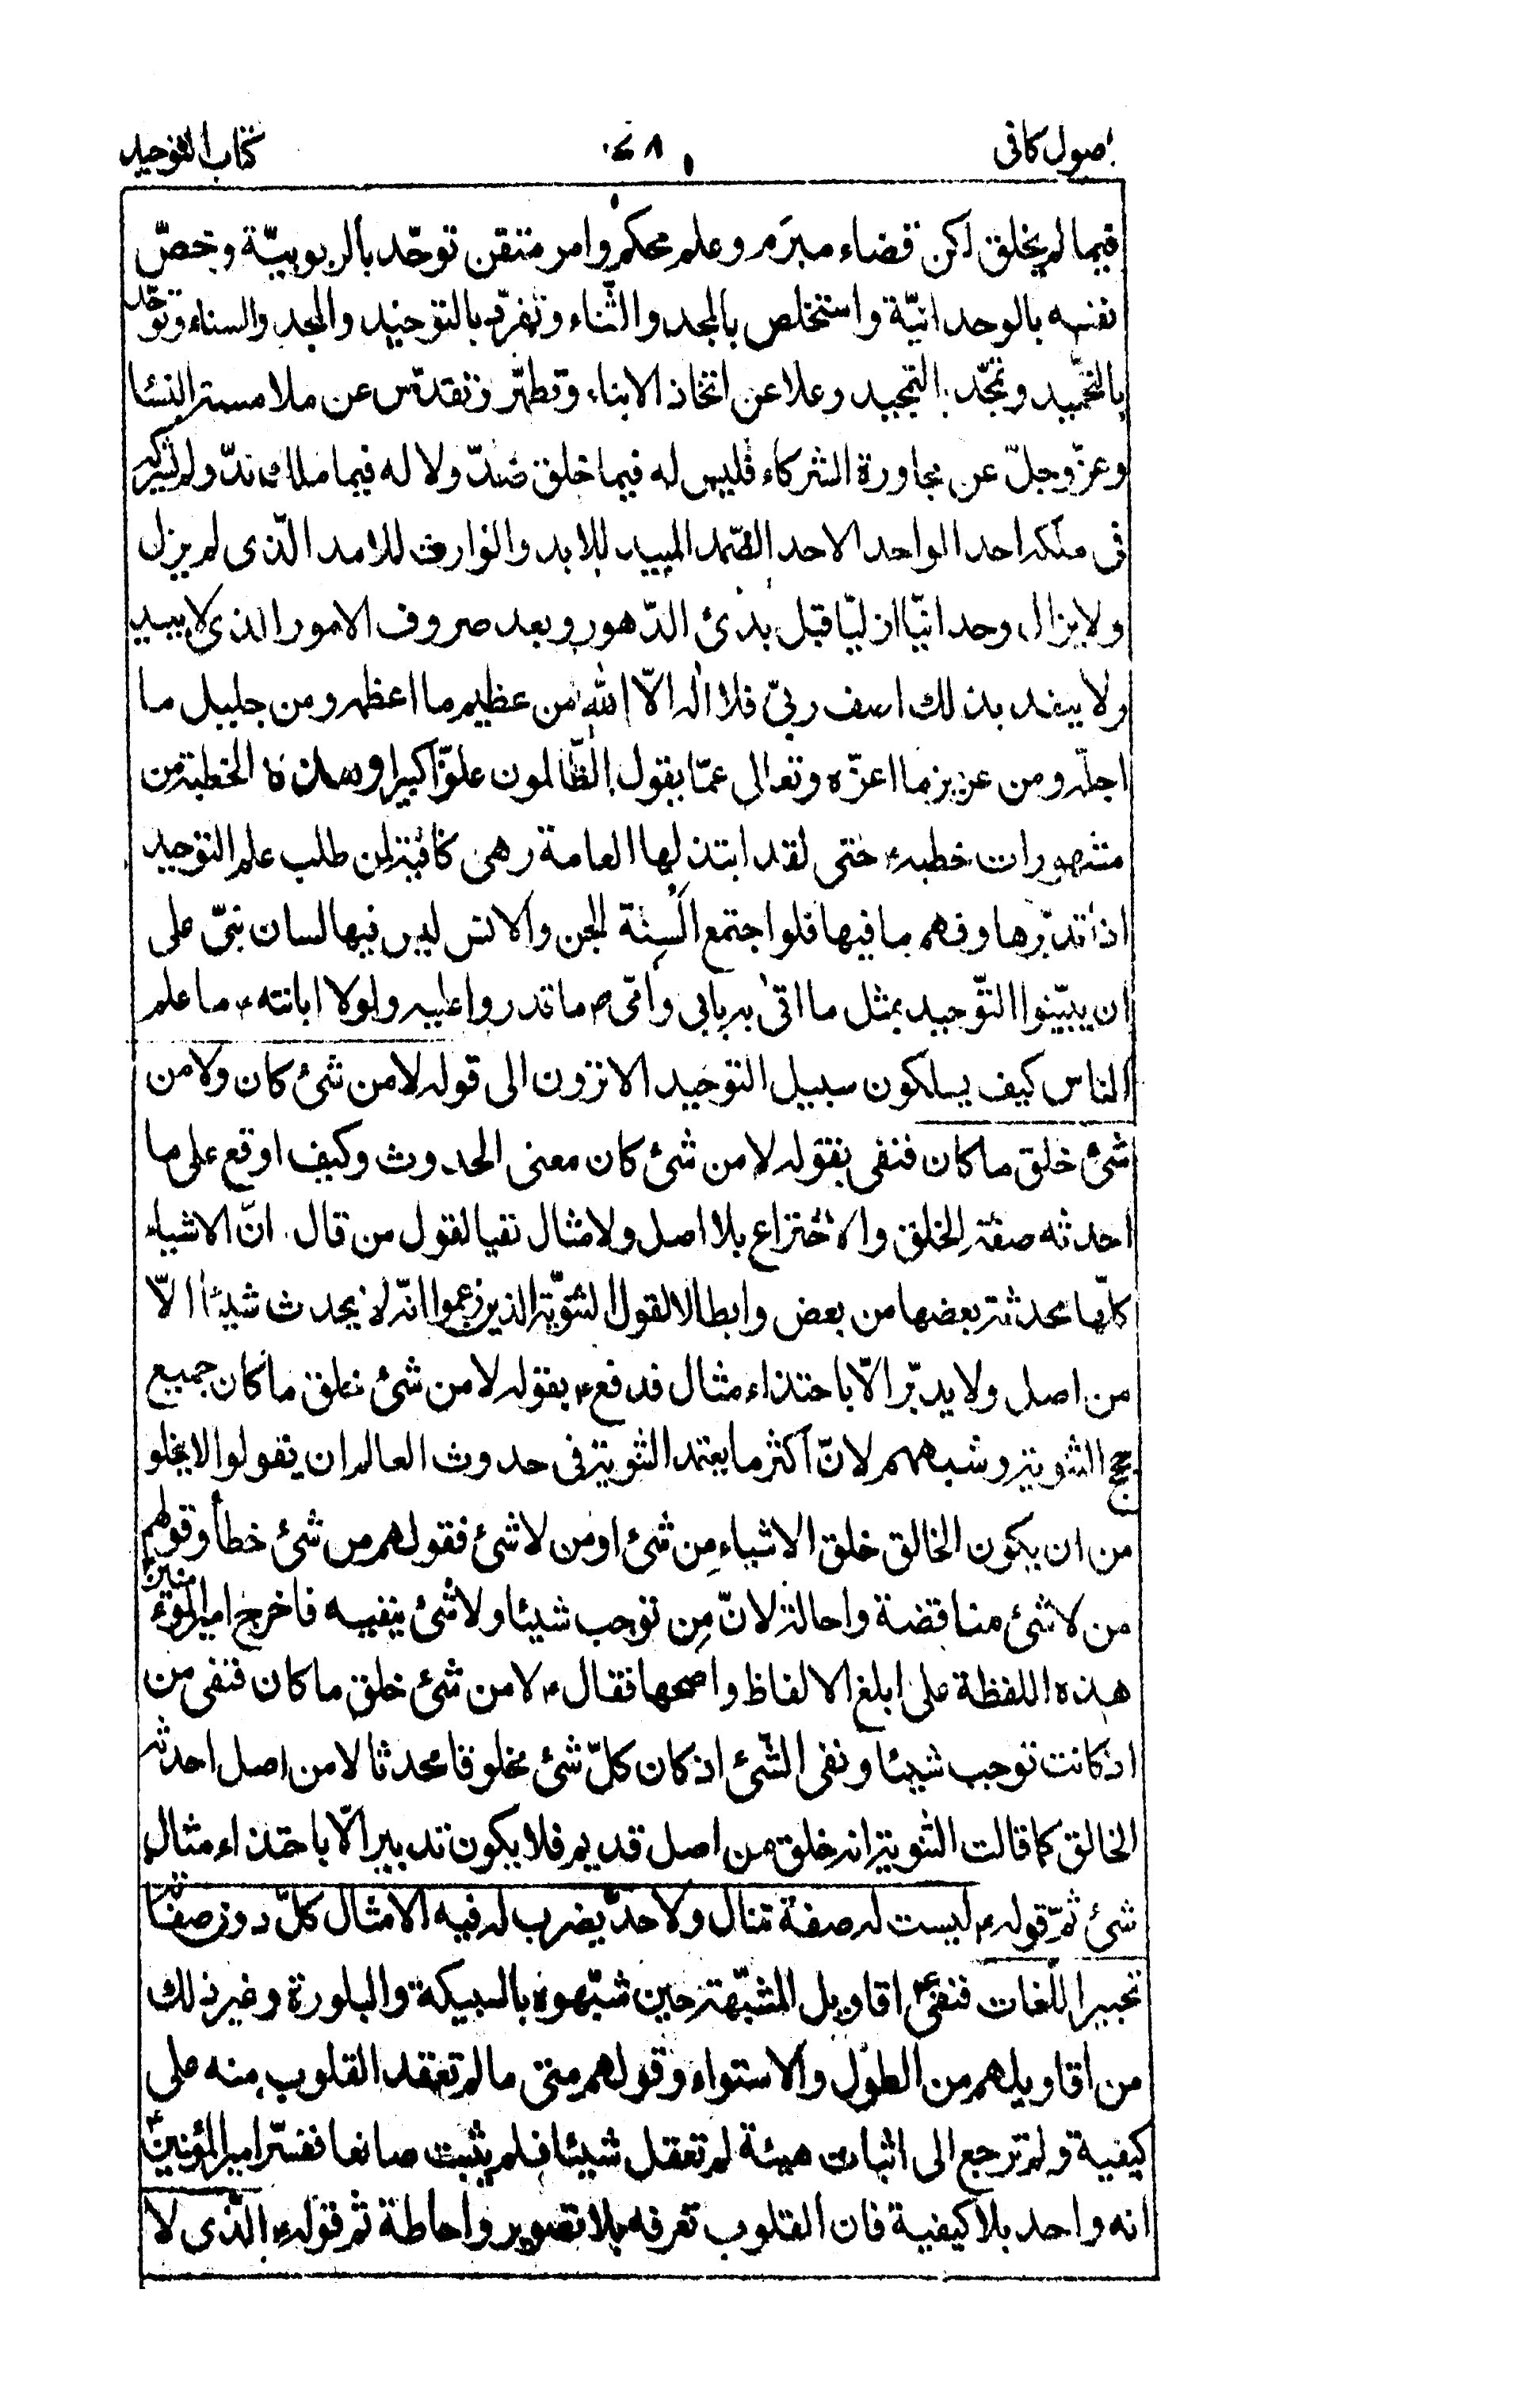 اصول كافى ٧٨ كتاب التوحيد
فيما لم يخلق لكن قضاء مبرَم وعلم محكم وامر متقن توحّد بالربوبيّة وخصّ
نفسه بالوحدانيّة واستخلص بالمجد والثّناء وتفرّد بالتوحيد والمجد والسناء وتوحّد
بالتحّميد وتمجّد بالتمجيد وعلا عن اتخاذ الابناء وتطهّر وتقدّس عن ملامسة النسٰا
وعزّ وجلّ عن مجاورة الشركاء فليس له فيما خلق ضدّ ولا له فيما ملك ندّ ولم يشركه
فى ملكه احد الواحد الاحد الصّمد المبيد للابد والوارث للامد الّذى لم يزل
ولا يزال وحدانيّا ازليّا قبل بدئ الدّهور وبعد صروف الامور الذى لا يبيد
ولا ينفد بذلك اصف ربىّ فلا اله الّا الله من عظيم ما اعظمه ومن جليل ما
اجلّه ومن عزيز ما اعزّه وتعالى عمّا يقول الظّالمون علوّا كبيرا وهذه الخطبة من
مشهورات خطبه ع حتى لقد ابتذلها العامة وهى كافية لمن طلب علم التوحيد
اذا تدبّرها وفهم ما فيها فلو اجتمع السنة الجن والانس ليس فيها لسان نبىّ على
ان يبيّنوا التّوحيد بمثل ما اتىٰ به بابى وامّى ص ما قدروا عليه ولولا ابانته ع ما علم
الناس كيف يسلكون سبيل التوحيد الا ترون الى قوله لا من شئ كان ولا من
شئ خلق ما كان فنفى بقوله لا من شئ كان معنى الحدوث وكيف اوقع على ما
احدثه صفة الخلق والاختراع بلا اصل ولا مثال نفيا لقول من قال انّ الاشياء
كلّها محدثة بعضها من بعض وابطالا لقول الثنويّة الذين زعموا انّه لا يحدث شيئا الّا
من اصل ولا يدبّر الّا باحتذاء مثال فدفع ع بقوله لا من شئ خلق ما كان جميع
حجج الثنوية وشبههم لانّ اكثر ما يعتمد الثنوية فى حدوث العالم ان يقولوا لا يخلو
من ان يكون الخالق خلق الاشياء مِن شئ او من لا شئ فقولهم من شئ خطأ وقولهم
من لا شئ مناقضة واحالة لانّ مِن توجب شيئا ولا شئ ينفيه فاخرج امير المؤمنين ع
هذه اللفظة على ابلغ الالفاظ واصحها فقال ع لا من شئ خلق ما كان فنفى من
اذ كانت توجب شيئا ونفى الشّئ اذ كان كلّ شئ مخلوقا محدثا لا من اصل احدثه
الخالق كما قالت الثنوية انه خلق من اصل قديم فلا يكون تدبير الّا باحتذاء مثال
شئ ثمّ قوله ع ليست له صفة تنال ولا حدّ يضرب له فيه الامثال كلّ دون صفاته
تحبير اللّغات فنفى ع اقاويل المشبّهة حين شبّهوه بالسبيكة والبلورة وغير ذلك
من اقاويلهم من الطول والاستواء وقولهم متى ما لم تعقد القلوب منه على
كيفية ولم ترجع الى اثبات هيئة لم تعقل شيئا فلم يثبت صانعا ففسّر امير المؤمنين ع
انه واحد بلا كيفية فان القلوب تعرفه بلا تصوير واحاطة ثم قوله ع الّذى لا